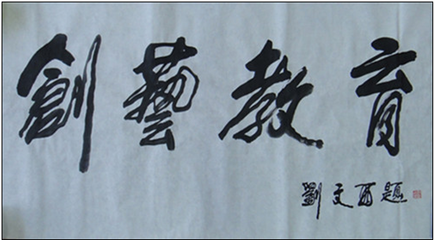 創藝教育
劉文西題